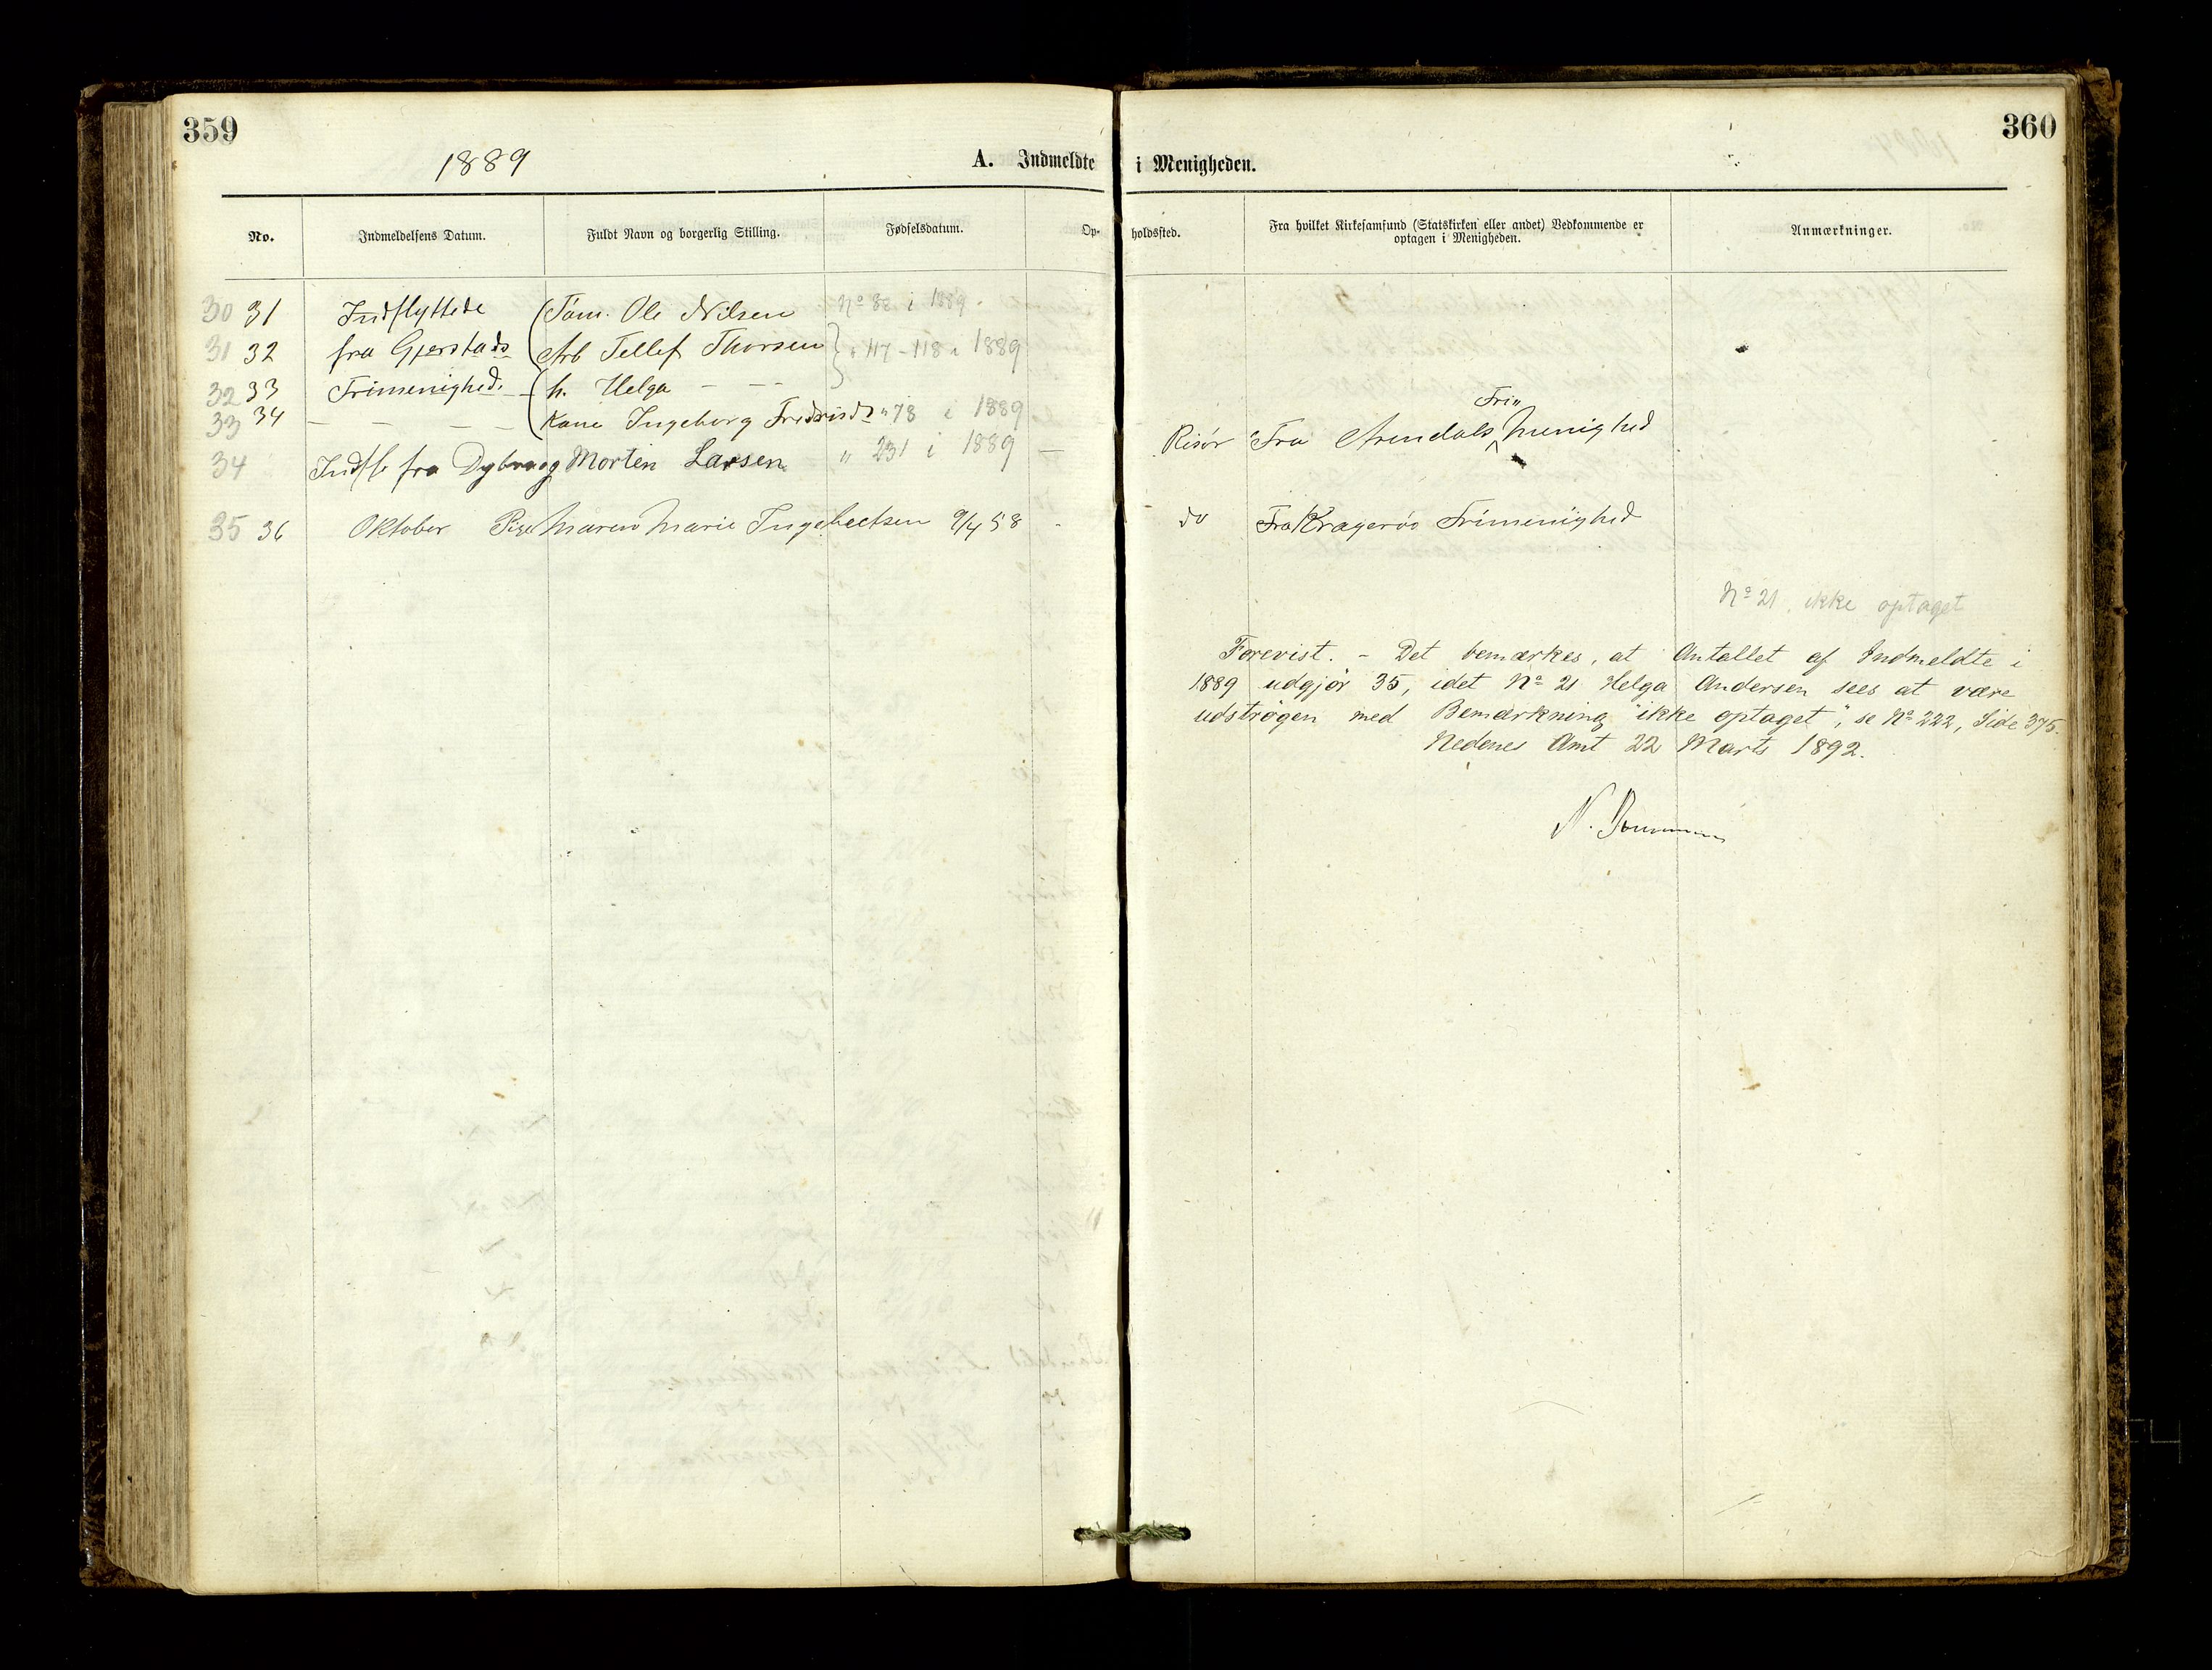 359
360
1889
A. Indmeldte i Menigheden.
No.
Indmeldelsens Datum.
Fuldt Navn og borgerlig Stilling.
Fødselsdatum.
Op-holdssted.
Fra hvilket Kirkesamfund (Statskirken eller andet) Vedkommende er
optagen i Menigheden.
Anmærkninger.
30 31 Indflyttede Tøm. Ole Nilsen No 82 i 1889.
31 32 fra Gjerstads Arb Tellef Thorsen " 117-118 i 1889
32 33 Frimenighed. h. Helga - -
33 34 - - - - Kone Ingeborg " 78 i 1889
34 Indfl fra Dybvaag Morten Larsen " 231 i 1889 - Risør Fra Arendals Fri" menighed
35 36 Oktober Pige Maren Marie Ingebretsen 9/4 58 - do Fra Kragerøs Frimenighed
No 21. ikke optaget
Forevist. - Det bemærkes, at Antallet af Indmeldte i
1889 udgjør 35, idet No 21 Helga Andersen sees at være
udstrøgen med Bemærkning "ikke optaget", se No 222, Side 375.
Nedenes Amt 22 Marts 1892.